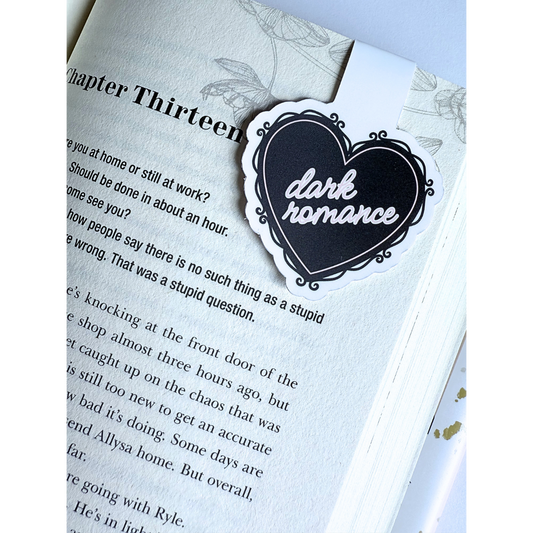 Chapter Thirteen
re you at home or still at work?
Should be done in about an hour.
ome see you?
how people say there is no such thing as a stupid
re wrong. That was a stupid question.
e's knocking at the front door of the
e shop almost three hours ago, but
et caught up on the chaos that was
is still too new to get an accurate
w bad it's doing. Some days are
end Allysa home. But overall,
far.
re going with Ryle.
. He's in
dark
romance